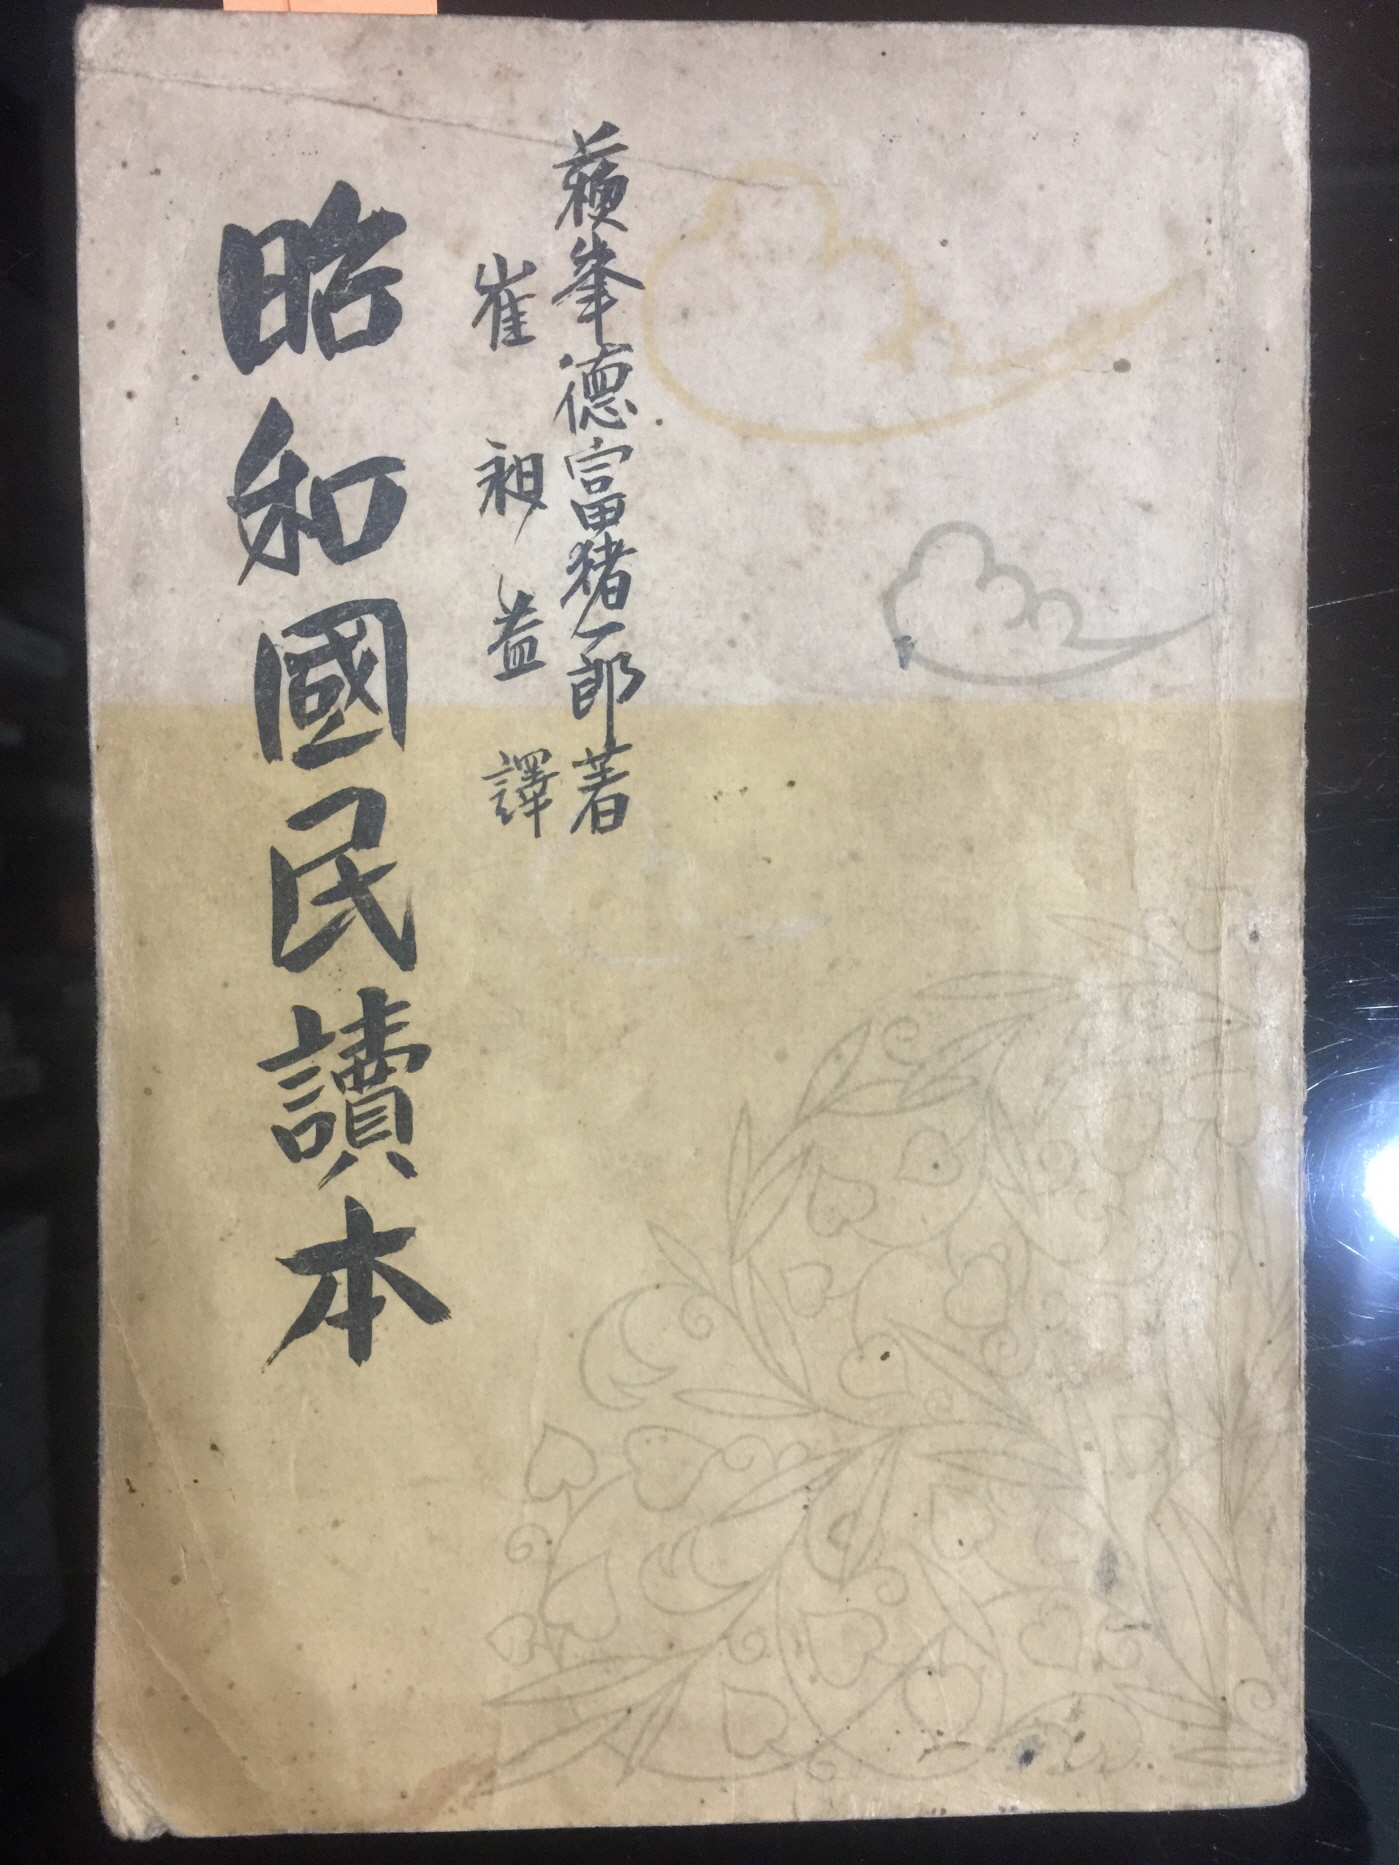 蘓峯德富猪一郎著
崔昶益譯
昭和國民讀本